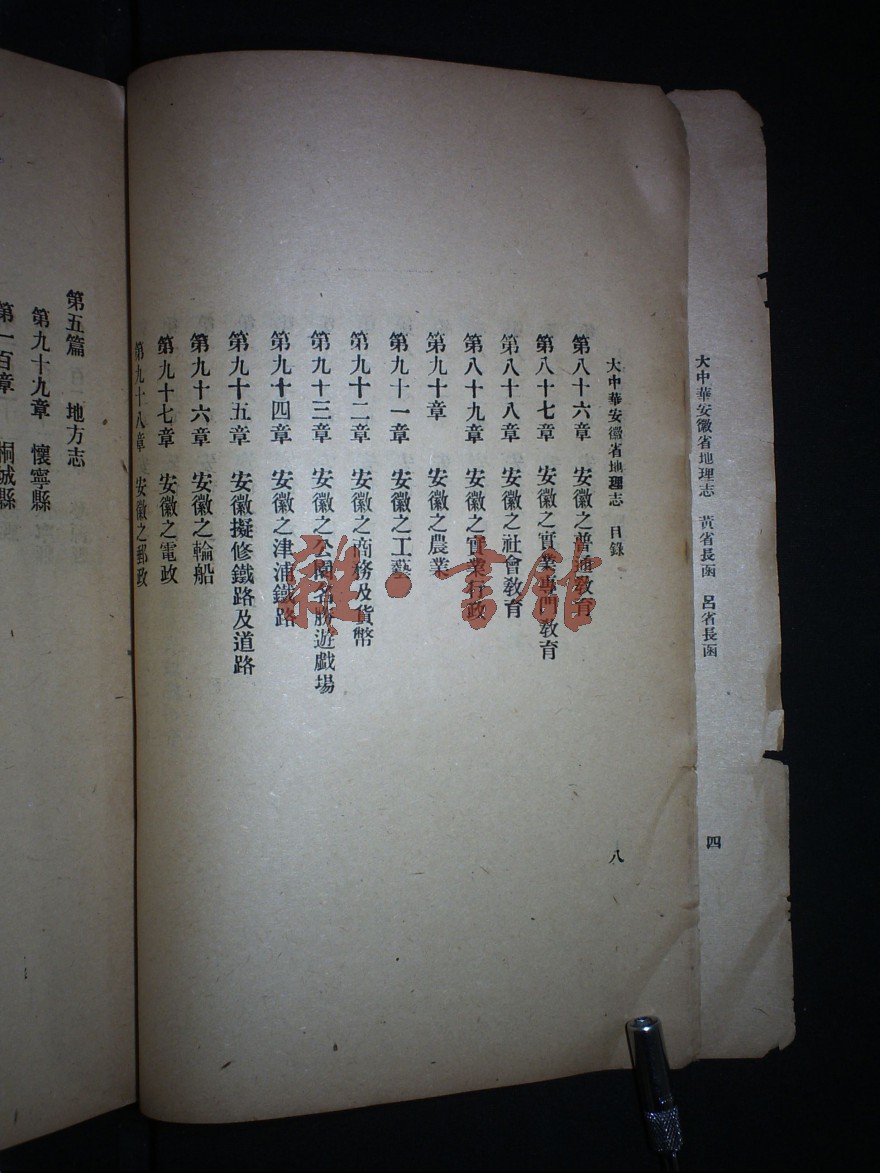 大中華安徽省地理志　黃省長函　呂省長函
四
大中華安徽省地理志　目錄
八
第八十六章　安徽之普通教育
第八十七章　安徽之實業專門教育
第八十八章　安徽之社會教育
第八十九章　安徽之實業行政
第九十章　安徽之農業
第九十一章　安徽之工藝
第九十二章　安徽之商務及貨幣
第九十三章　安徽之公園名勝遊戲場
第九十四章　安徽之津浦鐵路
第九十五章　安徽擬修鐵路及道路
第九十六章　安徽之輪船
第九十七章　安徽之電政
第九十八章　安徽之郵政
第五篇　地方志
第九十九章　懷寧縣
第一百章　桐城縣
雜·書館